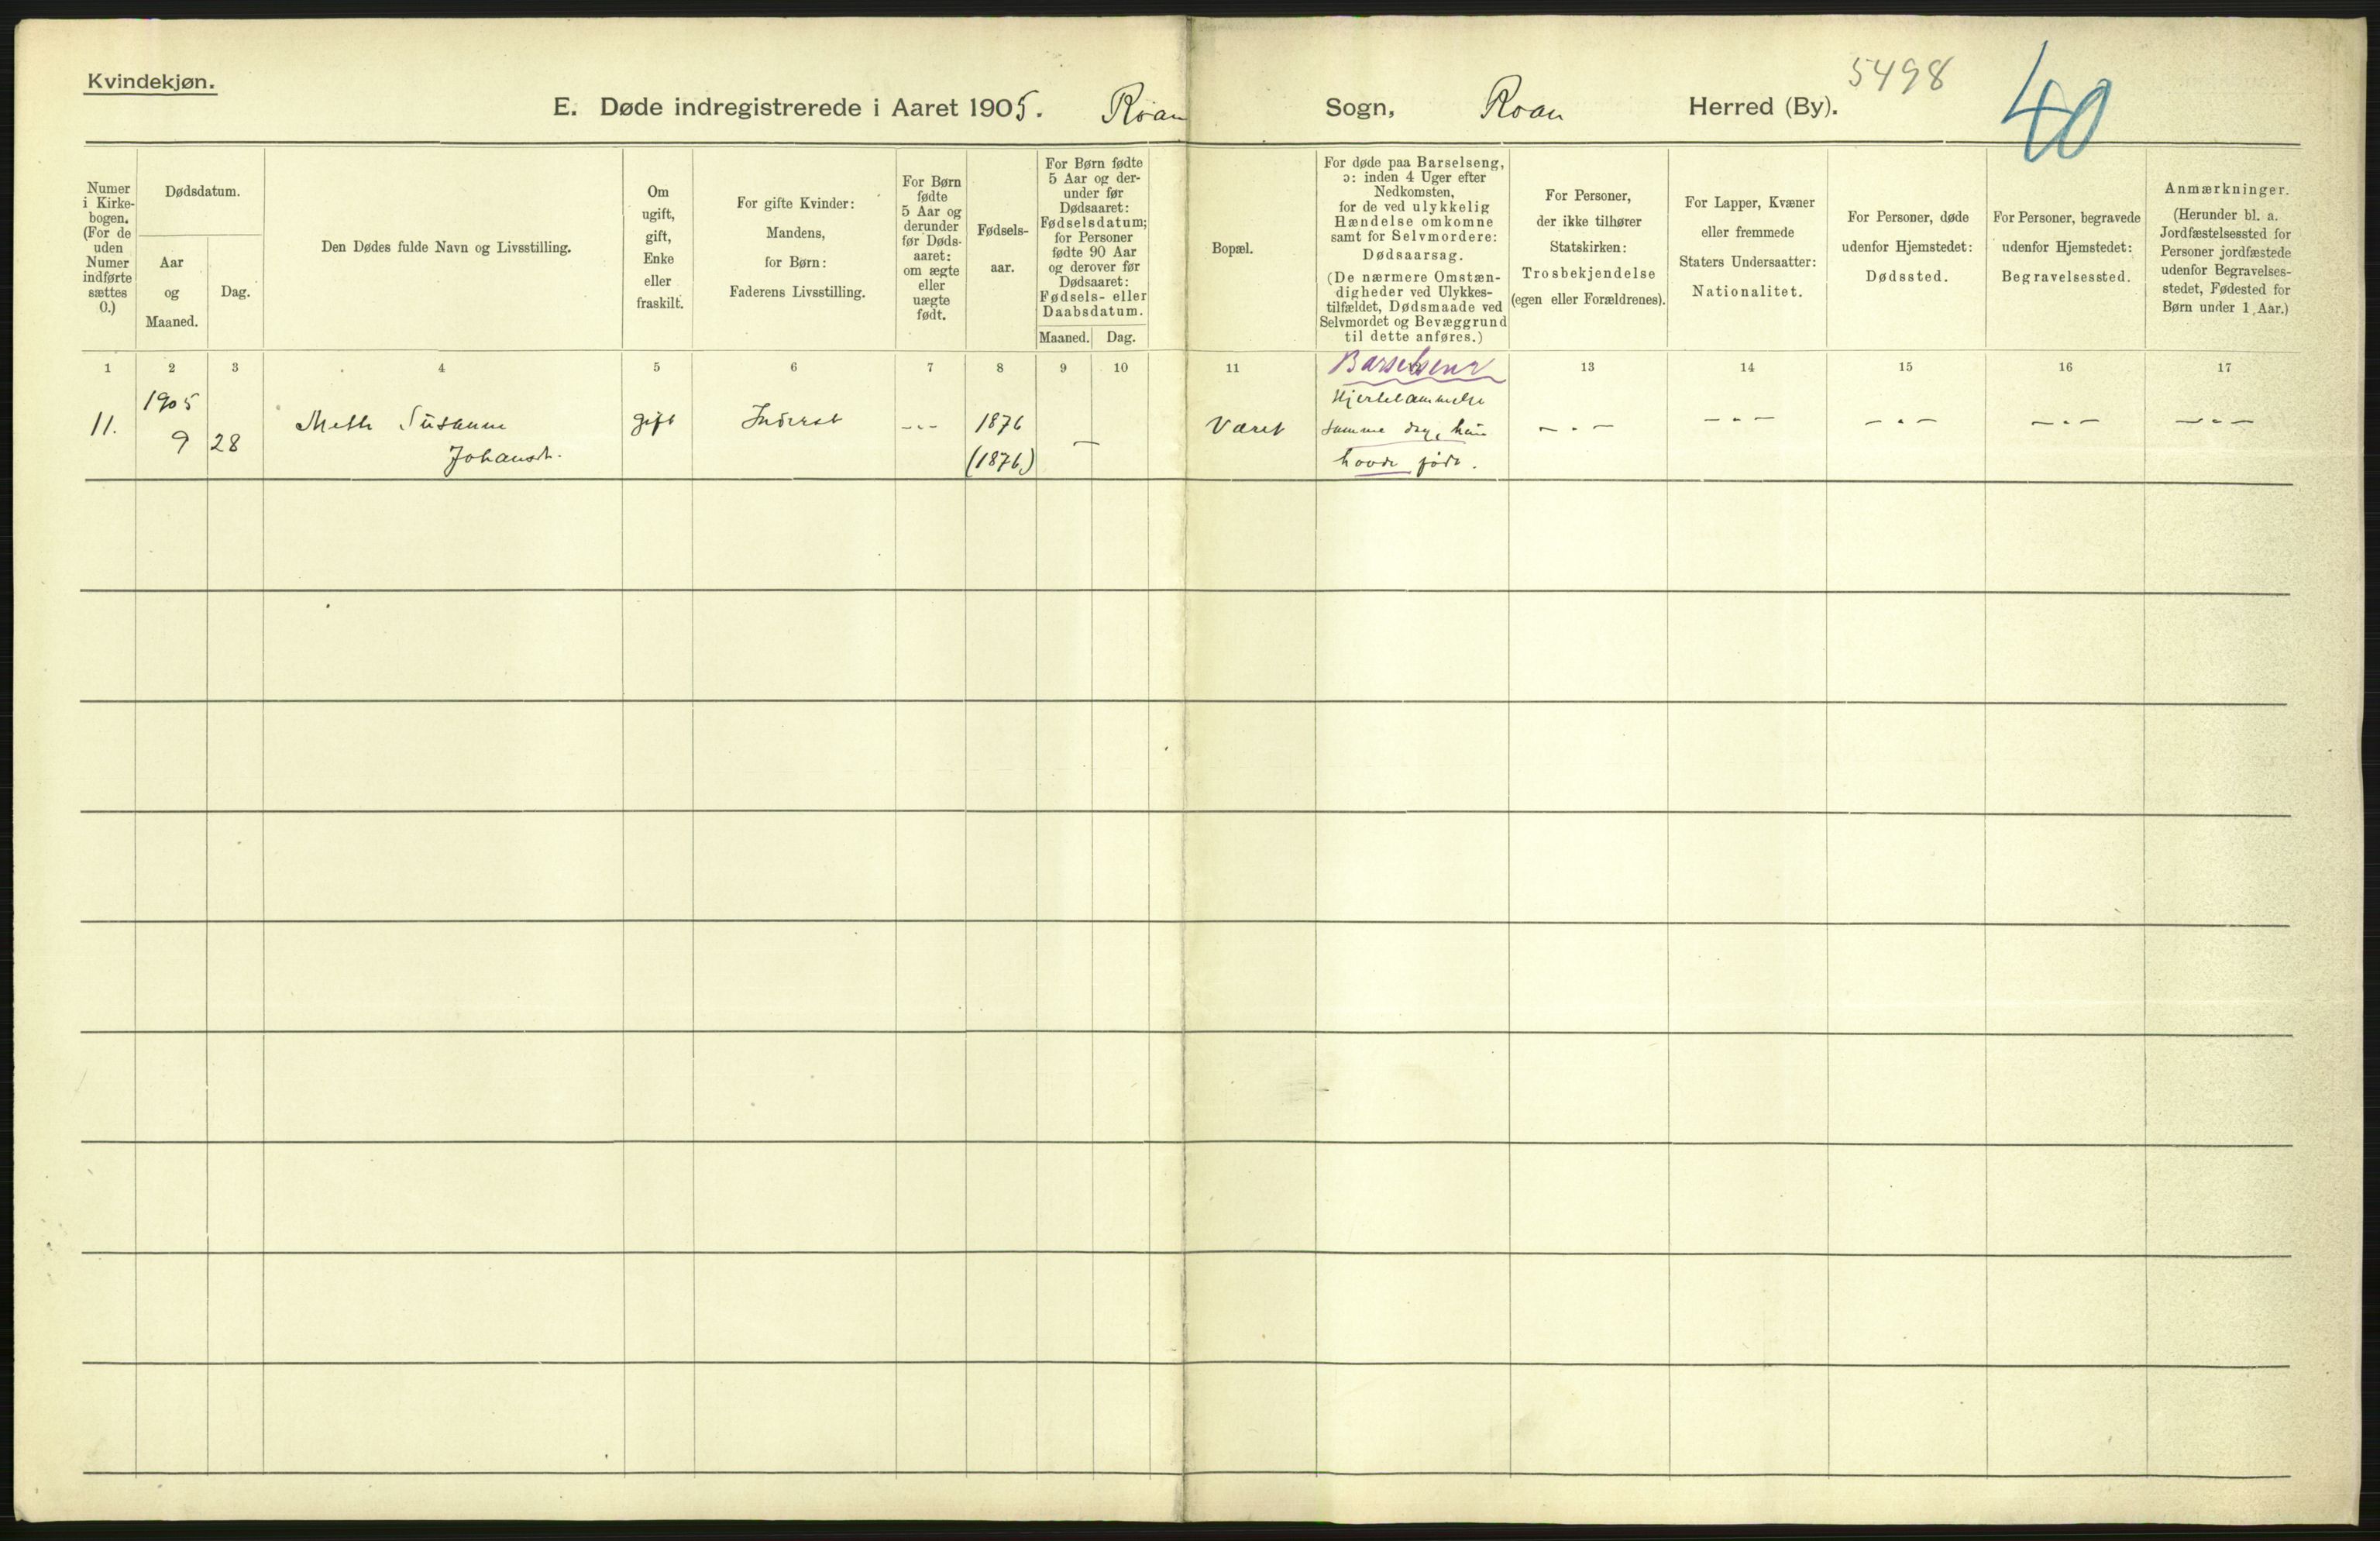 Kvindekjøn.
5498
40
E. Døde indregistrerede i Aaret 1905. Roan Sogn, Roan Herred (By).
Numer
i Kirke-
bogen.
(For de
uden
Numer
indførte
sættes
0.)
Dødsdatum.
Aar
og
Maaned.
Dag.
Den Dødes fulde Navn og Livsstilling.
Om
ugift,
gift,
Enke
eller
fraskilt.
For gifte Kvinder:
Mandens,
for Børn:
Faderens Livsstilling.
For Børn
fødte
5 Aar og
derunder
før Døds-
aaret:
om ægte
eller
uægte
født.
Fødsels-
aar.
For Børn fødte
5 Aar og der-
under før
Dødsaaret:
Fødselsdatum;
for Personer
fødte 90 Aar
og derover før
Dødsaaret:
Fødsels- eller
Daabsdatum.
Maaned. Dag.
Bopæl.
For døde paa Barselseng,
ɔ: inden 4 Uger efter
Nedkomsten,
for de ved ulykkelig
Hændelse omkomne
samt for Selvmordere:
Dødsaarsag.
(De nærmere Omstæn-
digheder ved Ulykkes-
tilfældet, Dødsmaade ved
Selvmordet og Bevæggrund
til dette anføres.)
For Personer,
der ikke tilhører
Statskirken:
Trosbekjendelse
(egen eller Forældrenes).
For Lapper, Kvæner
eller fremmede
Staters Undersaatter:
Nationalitet.
For Personer, døde
udenfor Hjemstedet:
Dødssted.
For Personer, begravede
udenfor Hjemstedet:
Begravelsessted.
Anmærkninger.
(Herunder bl. a.
Jordfæstelsessted for
Personer jordfæstede
udenfor Begravelses-
stedet, Fødested for
Børn under 1 Aar.)
1 2 3 4 5 6 7 8 9 10 11 13 14 15 16 17
Barselseng
11.
1905
9 28
Mette Susanne
Johansdt.
gift
Inderst
---
1876
(1876)
—
Været
Hjertelammelse
samme dag, hun
havde født.
- - -
- - -
- - -
- - -
- - -